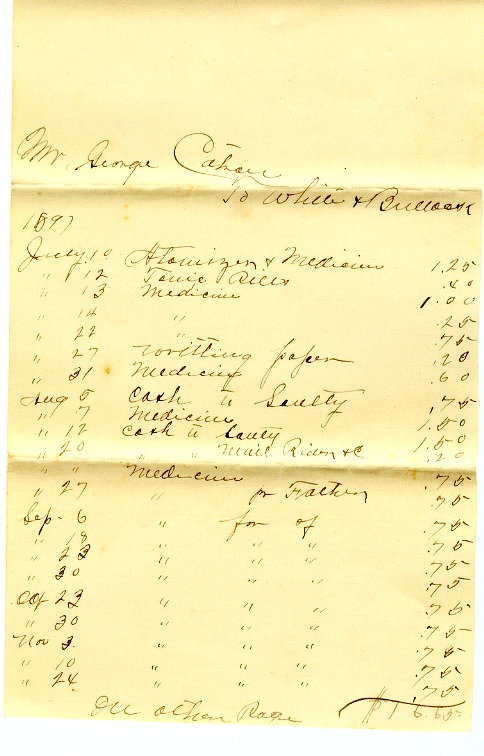 Mr. George
To White & Bullock
1897
July 10 Atomizer & Medicine 1.25
" 12 Tonic Pills .40
" 13 Medicine 1.00
" 14 " .25
" 22 " .75
" 27 writting paper .20
" 31 Medicine .60
Aug 5 Cash to .75
" 7 Medicine 1.50
" 12 Cash to 1.50
" 20 " " Mail &c .20
" " Medicine .75
" 27 " for Father .75
Sep. 6 " for of .75
" 18 " " " .75
" 23 " " " .75
" 30 " " " .75
Oct 23 " " " .75
" 30 " " " .75
Nov 3. " " " .75
" 10 " " " .75
" 24 " " " .75
On other Page $16.65